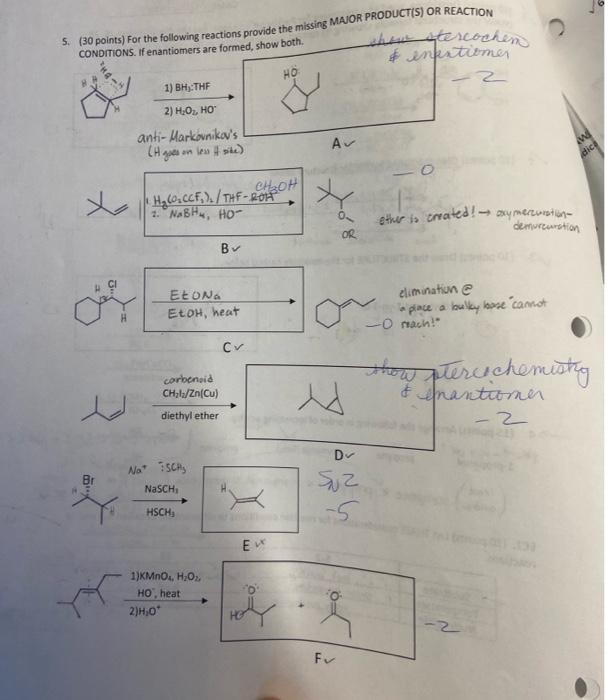 5. (30 points) For the following reactions provide the missing MAJOR PRODUCT(S) OR REACTION
CONDITIONS. If enantiomers are formed, show both.
show stereochem
& enantiomer
-2
H H
H
1) BH₃:THF
2) H₂O₂, HO⁻
HO
anti-Markovnikov's
(H goes on less H side)
A✓
1. Hg(O₂CCF₃)₂/THF-ROH CH₃OH
2. NaBH₄, HO⁻
O
OR
-0
ether is created! → oxymercuration-
demercuration
B✓
H Cl
H
EtONa
EtOH, heat
elimination @
"a place a bulky base "cannot
reach!"
-0
C✓
carbenoid
CH₂I₂/Zn(Cu)
diethyl ether
show stereochemistry
& enantiomer
-2
D✓
Na⁺ :SCH₃
Br
H
H
NaSCH₃
HSCH₃
H
SN2
-5
E
1)KMnO₄, H₂O₂,
HO⁻, heat
2)H₃O⁺
O
HO
+
O
-2
F✓